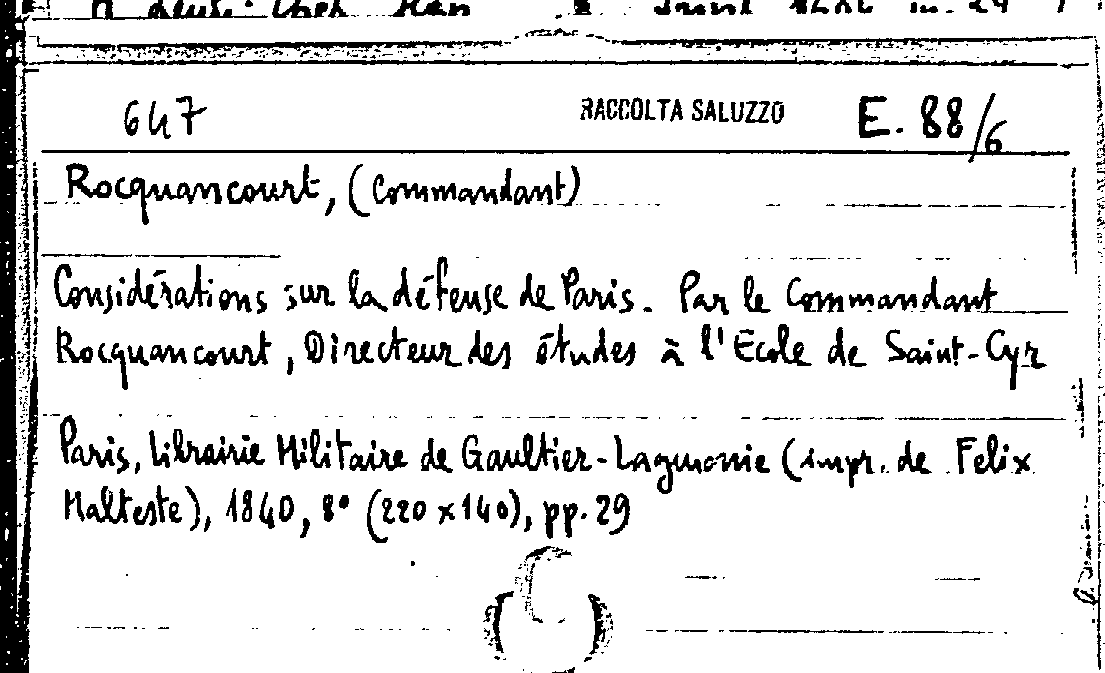 647 RACCOLTA SALUZZO E. 88/6
Rocquancourt, (Commandant)
Considérations sur la défense de Paris. Par le Commandant
Rocquancourt, Directeur des études à l'École de Saint-Cyr
Paris, Librairie Militaire de Gaultier-Laguionie (impr. de Felix
Malteste), 1840, 8° (220 x 140), pp. 29